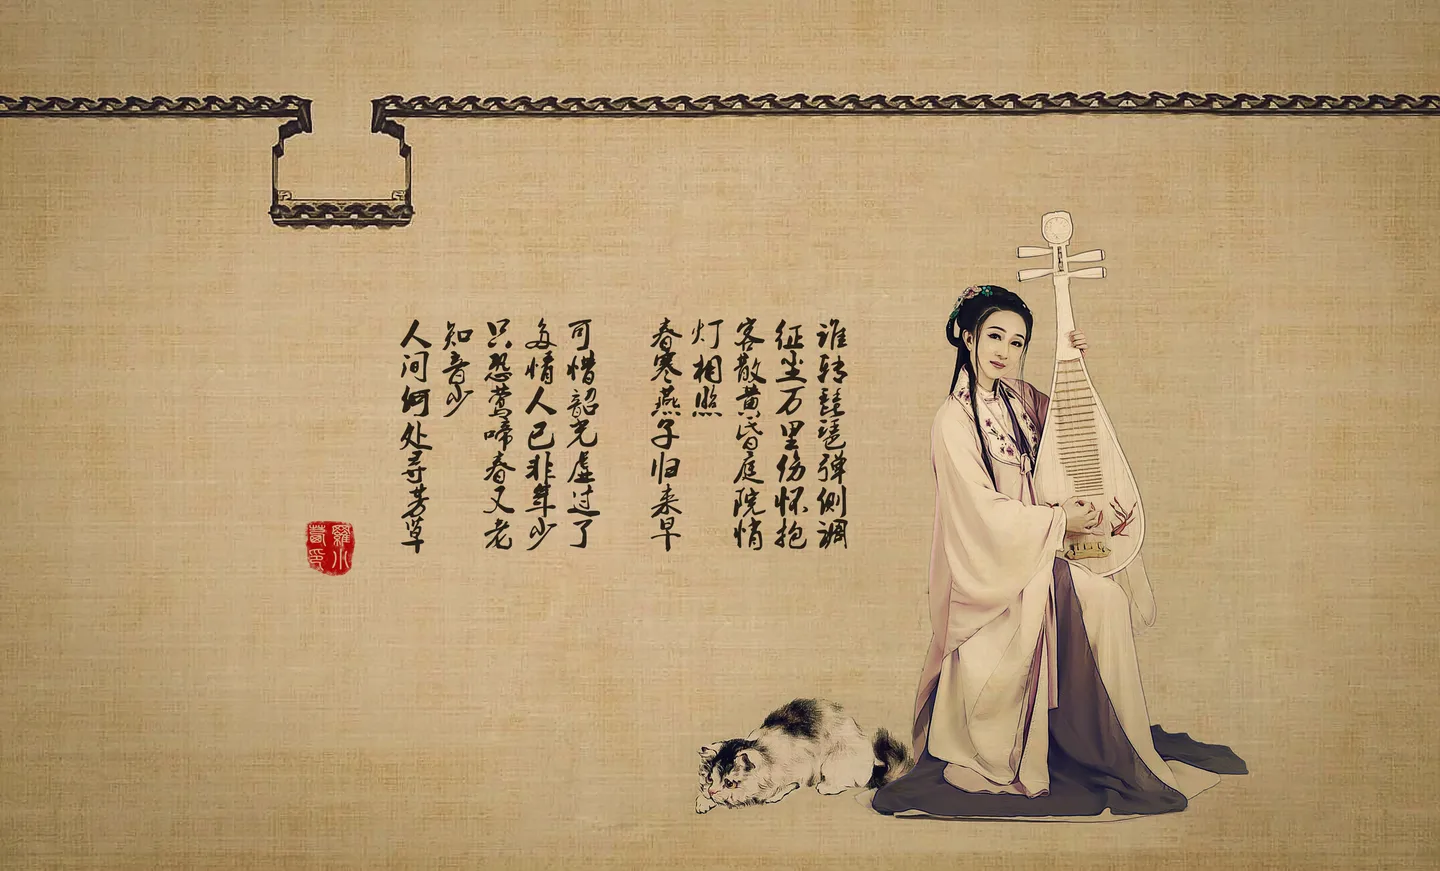 谁转琵琶弹侧调
征尘万里伤怀抱
客散黄昏庭院悄
灯相照
春寒燕子归来早
可惜韶光虚过了
多情人已非年少
只恐莺啼春又老
知音少
人间何处寻芳草